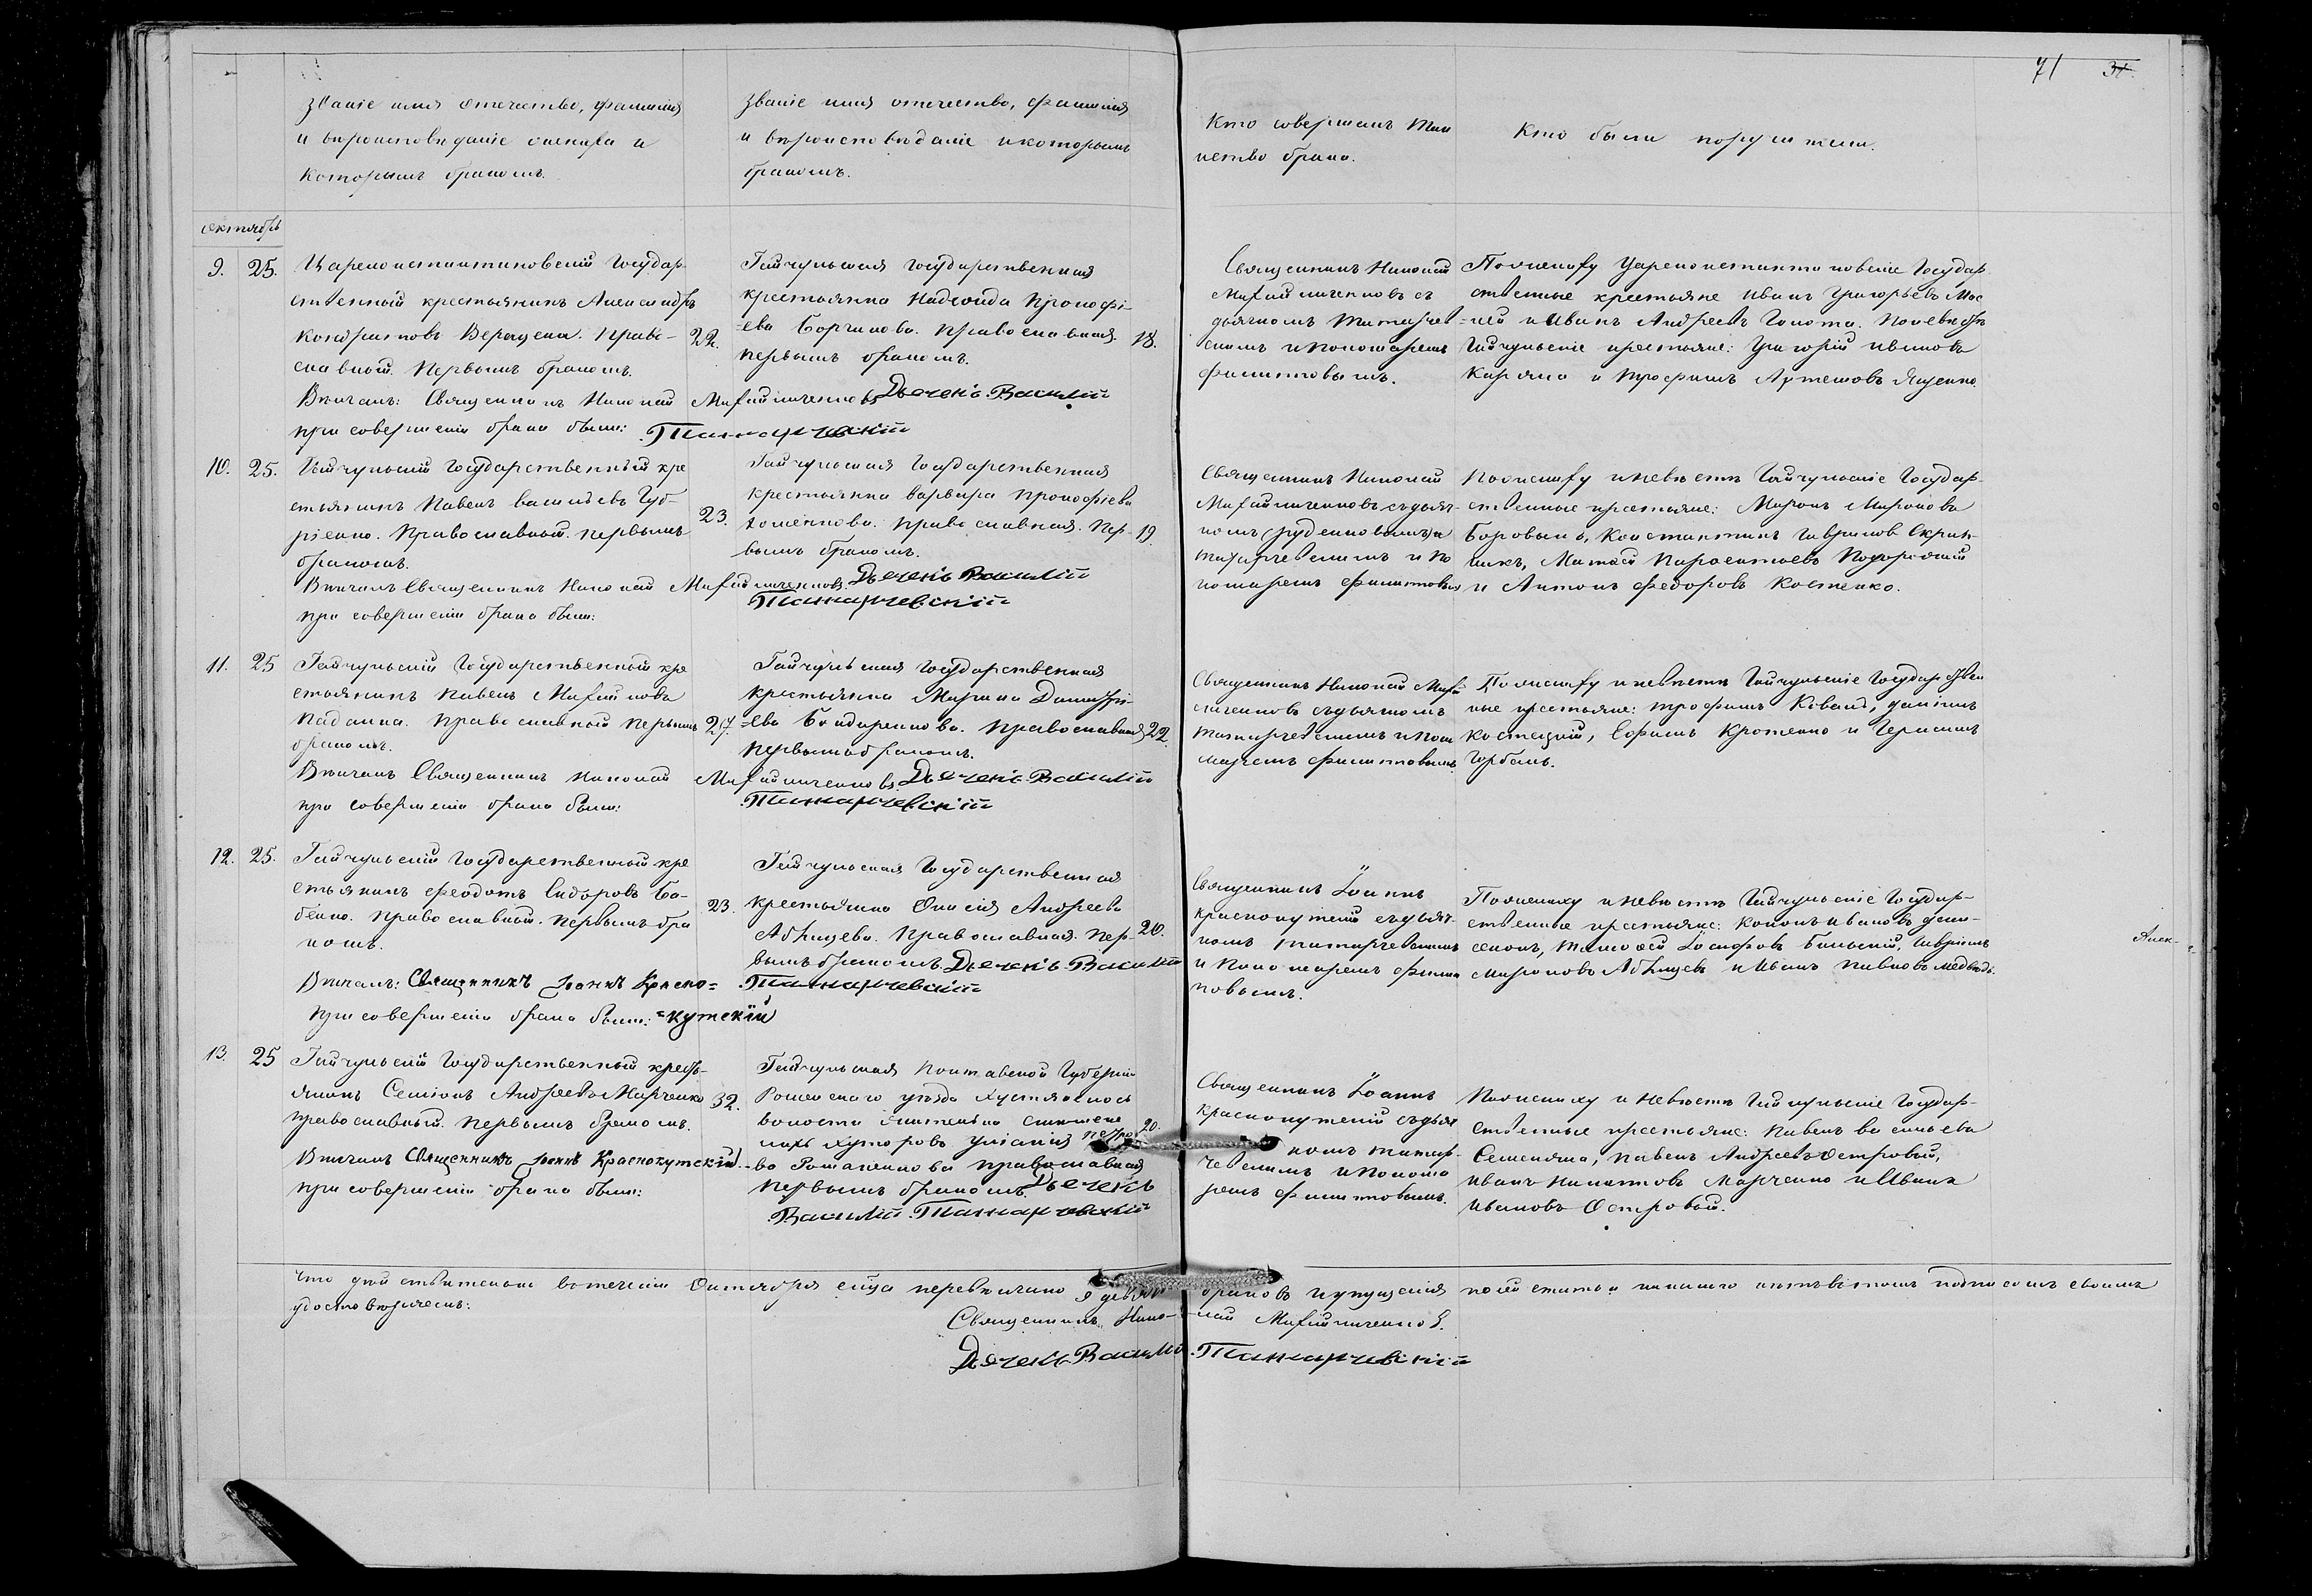 71 31.
Званіе имя отчество, фамилія
и вѣроисповѣданіе жениха и
которымъ бракомъ.
Званіе имя отчество, фамилія
и вѣроисповѣданіе и которымъ
бракомъ.
Кто совершалъ Таи
нство брака.
Кто были поручители.
Октябрь
9. 25.
Цареконстантиновскій Государ-
ственный крестьянинъ Александръ
Кондратовъ Верещака. Право-
славный. Первымъ бракомъ.
22.
Гайчульская Государственная
крестьянка Надежда Прокофі-
=ева Православная.
первымъ бракомъ.
18.
Священникъ Николай
Михайличенковъ съ
дьячкомъ Татарчев-
скимъ и Пономаремъ
Филиповымъ.
По жениху Цареконстантиновскіе Государ
ственные крестьяне Иванъ Григорьевъ Мос
=лей и Иванъ Андреевъ Голота. По невѣстѣ
Гайчульскіе крестьяне: Григорій Ивановъ
Каряка и Трофимъ Артемовъ Яценко.
Вѣнчалъ: Священникъ Николай Михайличенковъ Дьячекъ Василій
при совершеніи брака были: Татарчевскій
10. 25.
Гайчульскій Государственный кре
стьянинъ Павелъ Васильевъ Гу
ріенко. Православный. первымъ
бракомъ.
23.
Гайчульская Государственная
крестьянка Варвара Прокофіева
Хоменкова. Православная. Пер-
вымъ бракомъ.
19.
Священникъ Николай
Михайличенковъ съ дьяч-
комъ
Татарчевскимъ и По
номаремъ Филиповымъ
По жениху и невѣстѣ Гайчульскіе Государ-
ственные крестьяне: Миронъ Мироновъ
Боровикъ, Константинъ Гавриловъ Скрип-
никъ, Матвѣй
и Антонъ Федоровъ Костенко.
Вѣнчалъ Священникъ Николай Михайличенковъ Дьячекъ Василій
при совершеніи брака были: Татарчевскій
11. 25
Гайчульскій Государственный кре
стьянинъ Павелъ Михайловъ
Падалка. Православный первымъ
бракомъ.
27.
Гайчульская Государственная
крестьянка Марина Дмитрі-
=ева Бондаренкова. Православная
первымъ бракомъ.
22.
Священникъ Николай Миха
личенковъ съ дьячкомъ
Татарчевскимъ и Поно
маремъ Филиповымъ
По жениху и невѣстѣ Гайчульскіе Государствен
ные крестьяне: Трофимъ Коваль, Даніилъ
Костецкій, Ефимъ Кротенко и Герасимъ
Гурбаль.
Вѣнчалъ Священникъ Николай Михайличенковъ. Дьячекъ Василій
при совершеніи брака были: Татарчевскій
12. 25.
Гайчульскій Государственный кре
стьянинъ Феодотъ Сидоровъ Бо-
бенко. Православный. первымъ бра
комъ.
23.
Гайчульская Государственная
крестьянка Онисія Андреева
Абрищева. Православная. Пер-
вымъ бракомъ. Дьячекъ Василій
Татарчевскій
20.
Священникъ Іоаннъ
Краснокутскій съ дьяч-
комъ Татарчевскимъ
и Пономаремъ Фили
повымъ.
По жениху и невѣстѣ Гайчульскіе Государ-
ственные крестьяне: Кононъ Ивановъ
Гавріилъ
Мироновъ Абрищевъ и Иванъ Павловъ Медвѣдь.
Алек-
Вѣнчалъ: Священникъ Іоаннъ Красно=
при совершеніи брака были: =кутскій
13. 25
Гайчульскій Государственный кресть-
янинъ Семіонъ Андреевъ Марченко
православный. Первымъ бракомъ.
32.
Гайчульская Полтавской Губерніи
Роменскаго уѣзда
волости
хуторовъ Петро-
ва Романенкова православная
первымъ бракомъ. Дьячекъ
Василій Татарчевскій
20.
Священникъ Іоаннъ
Краснокутскій съ дьяч
комъ Татар-
чевскимъ и Понома
ремъ Филиповымъ.
По жениху и невѣстѣ Гайчульскіе Государ-
ственные крестьяне: Павелъ Васильевъ
Семеняка, Павелъ Андреевъ Островый,
Иванъ Марченко и Иванъ
Ивановъ Островый.
Вѣнчалъ Священникъ Іоаннъ Краснокутскій
при совершеніи брака были:
Что дѣйствительно въ теченіи Октября сего перевѣнчано браковъ и упущенія
удостовѣряемъ: подписомъ своимъ
Священникъ Николай Михайличенковъ.
Дьячекъ Василій Татарчевскій